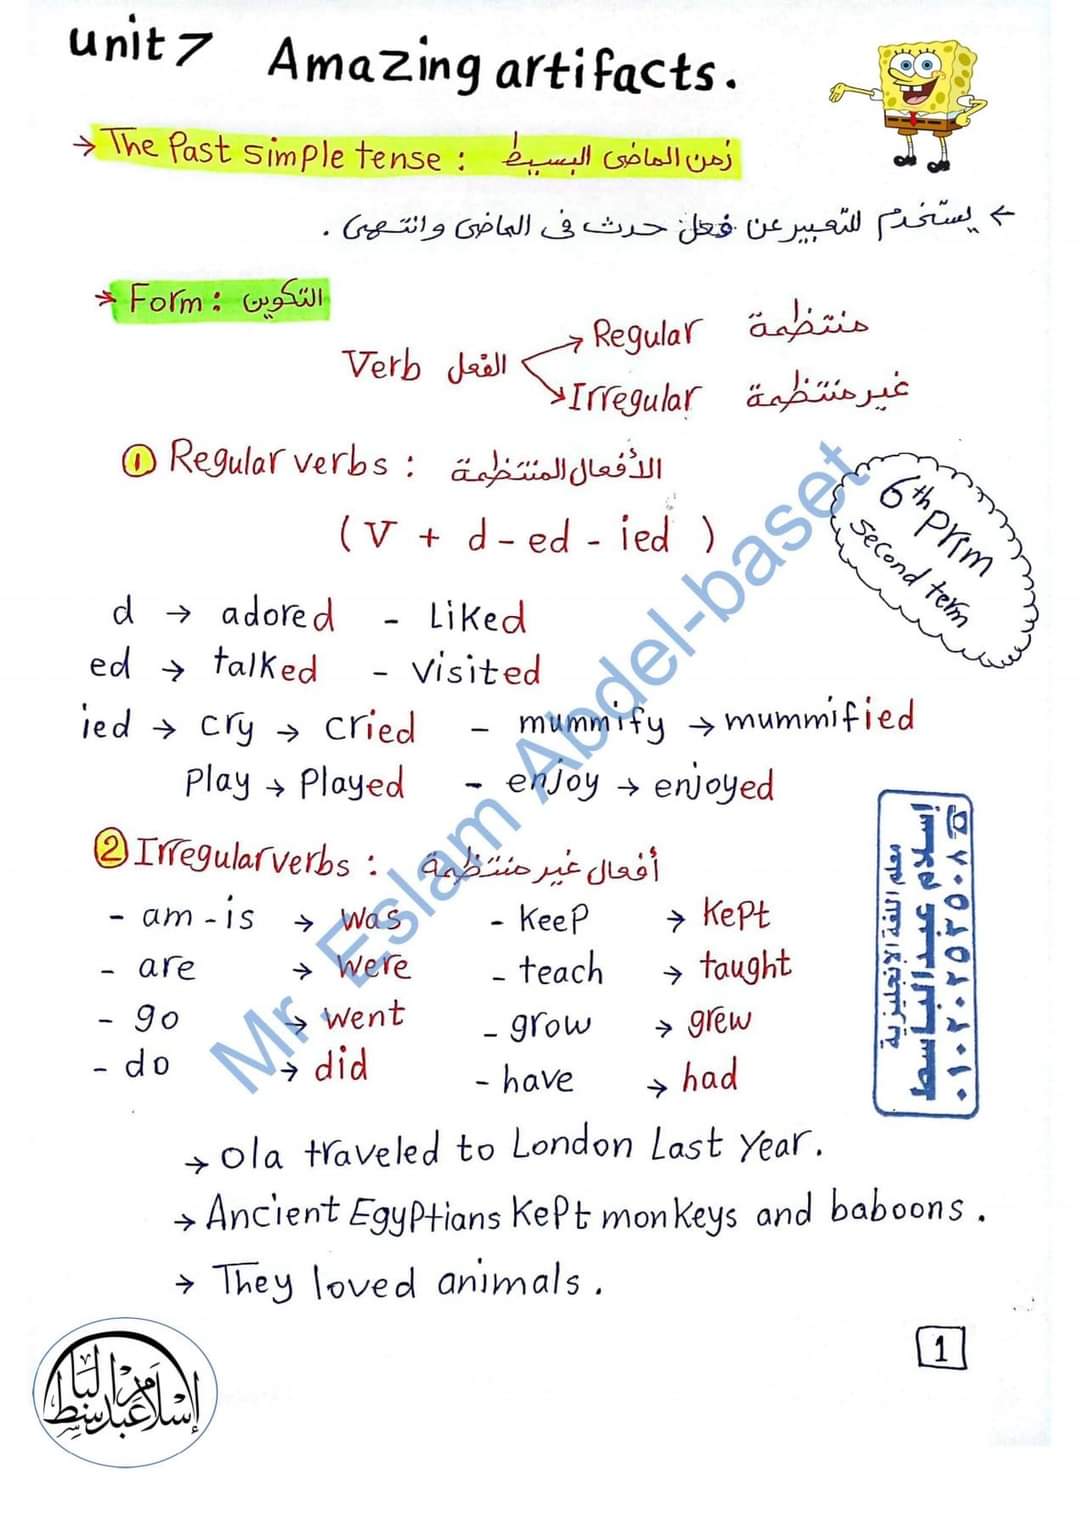 unit 7 Amazing artifacts.
→ The Past simple tense : زمن الماضى البسيط
← يستخدم للتعبير عن فعل حدث فى الماضى وانتهى .
→ Form : التكوين
Verb الفعل → Regular منتظمة
→ Irregular غير منتظمة
① Regular verbs : الأفعال المنتظمة
( V + d - ed - ied )
6th prim
second term
d → adored - Liked
ed → talked - visited
ied → cry → cried - mummify → mummified
Play → Played - enjoy → enjoyed
② Irregular verbs : أفعال غير منتظمة
- am - is → was - keep → kept
- are → were - teach → taught
- go → went - grow → grew
- do → did - have → had
→ Ola traveled to London Last year.
→ Ancient Egyptians kept monkeys and baboons.
→ They loved animals.
1
Mr. Eslam Abdel-baset
معلم اللغة الإنجليزية
إسلام عبدالباسط
٠١٠٢٠٢٥٢٥٠٨
إسلام عبدالباسط